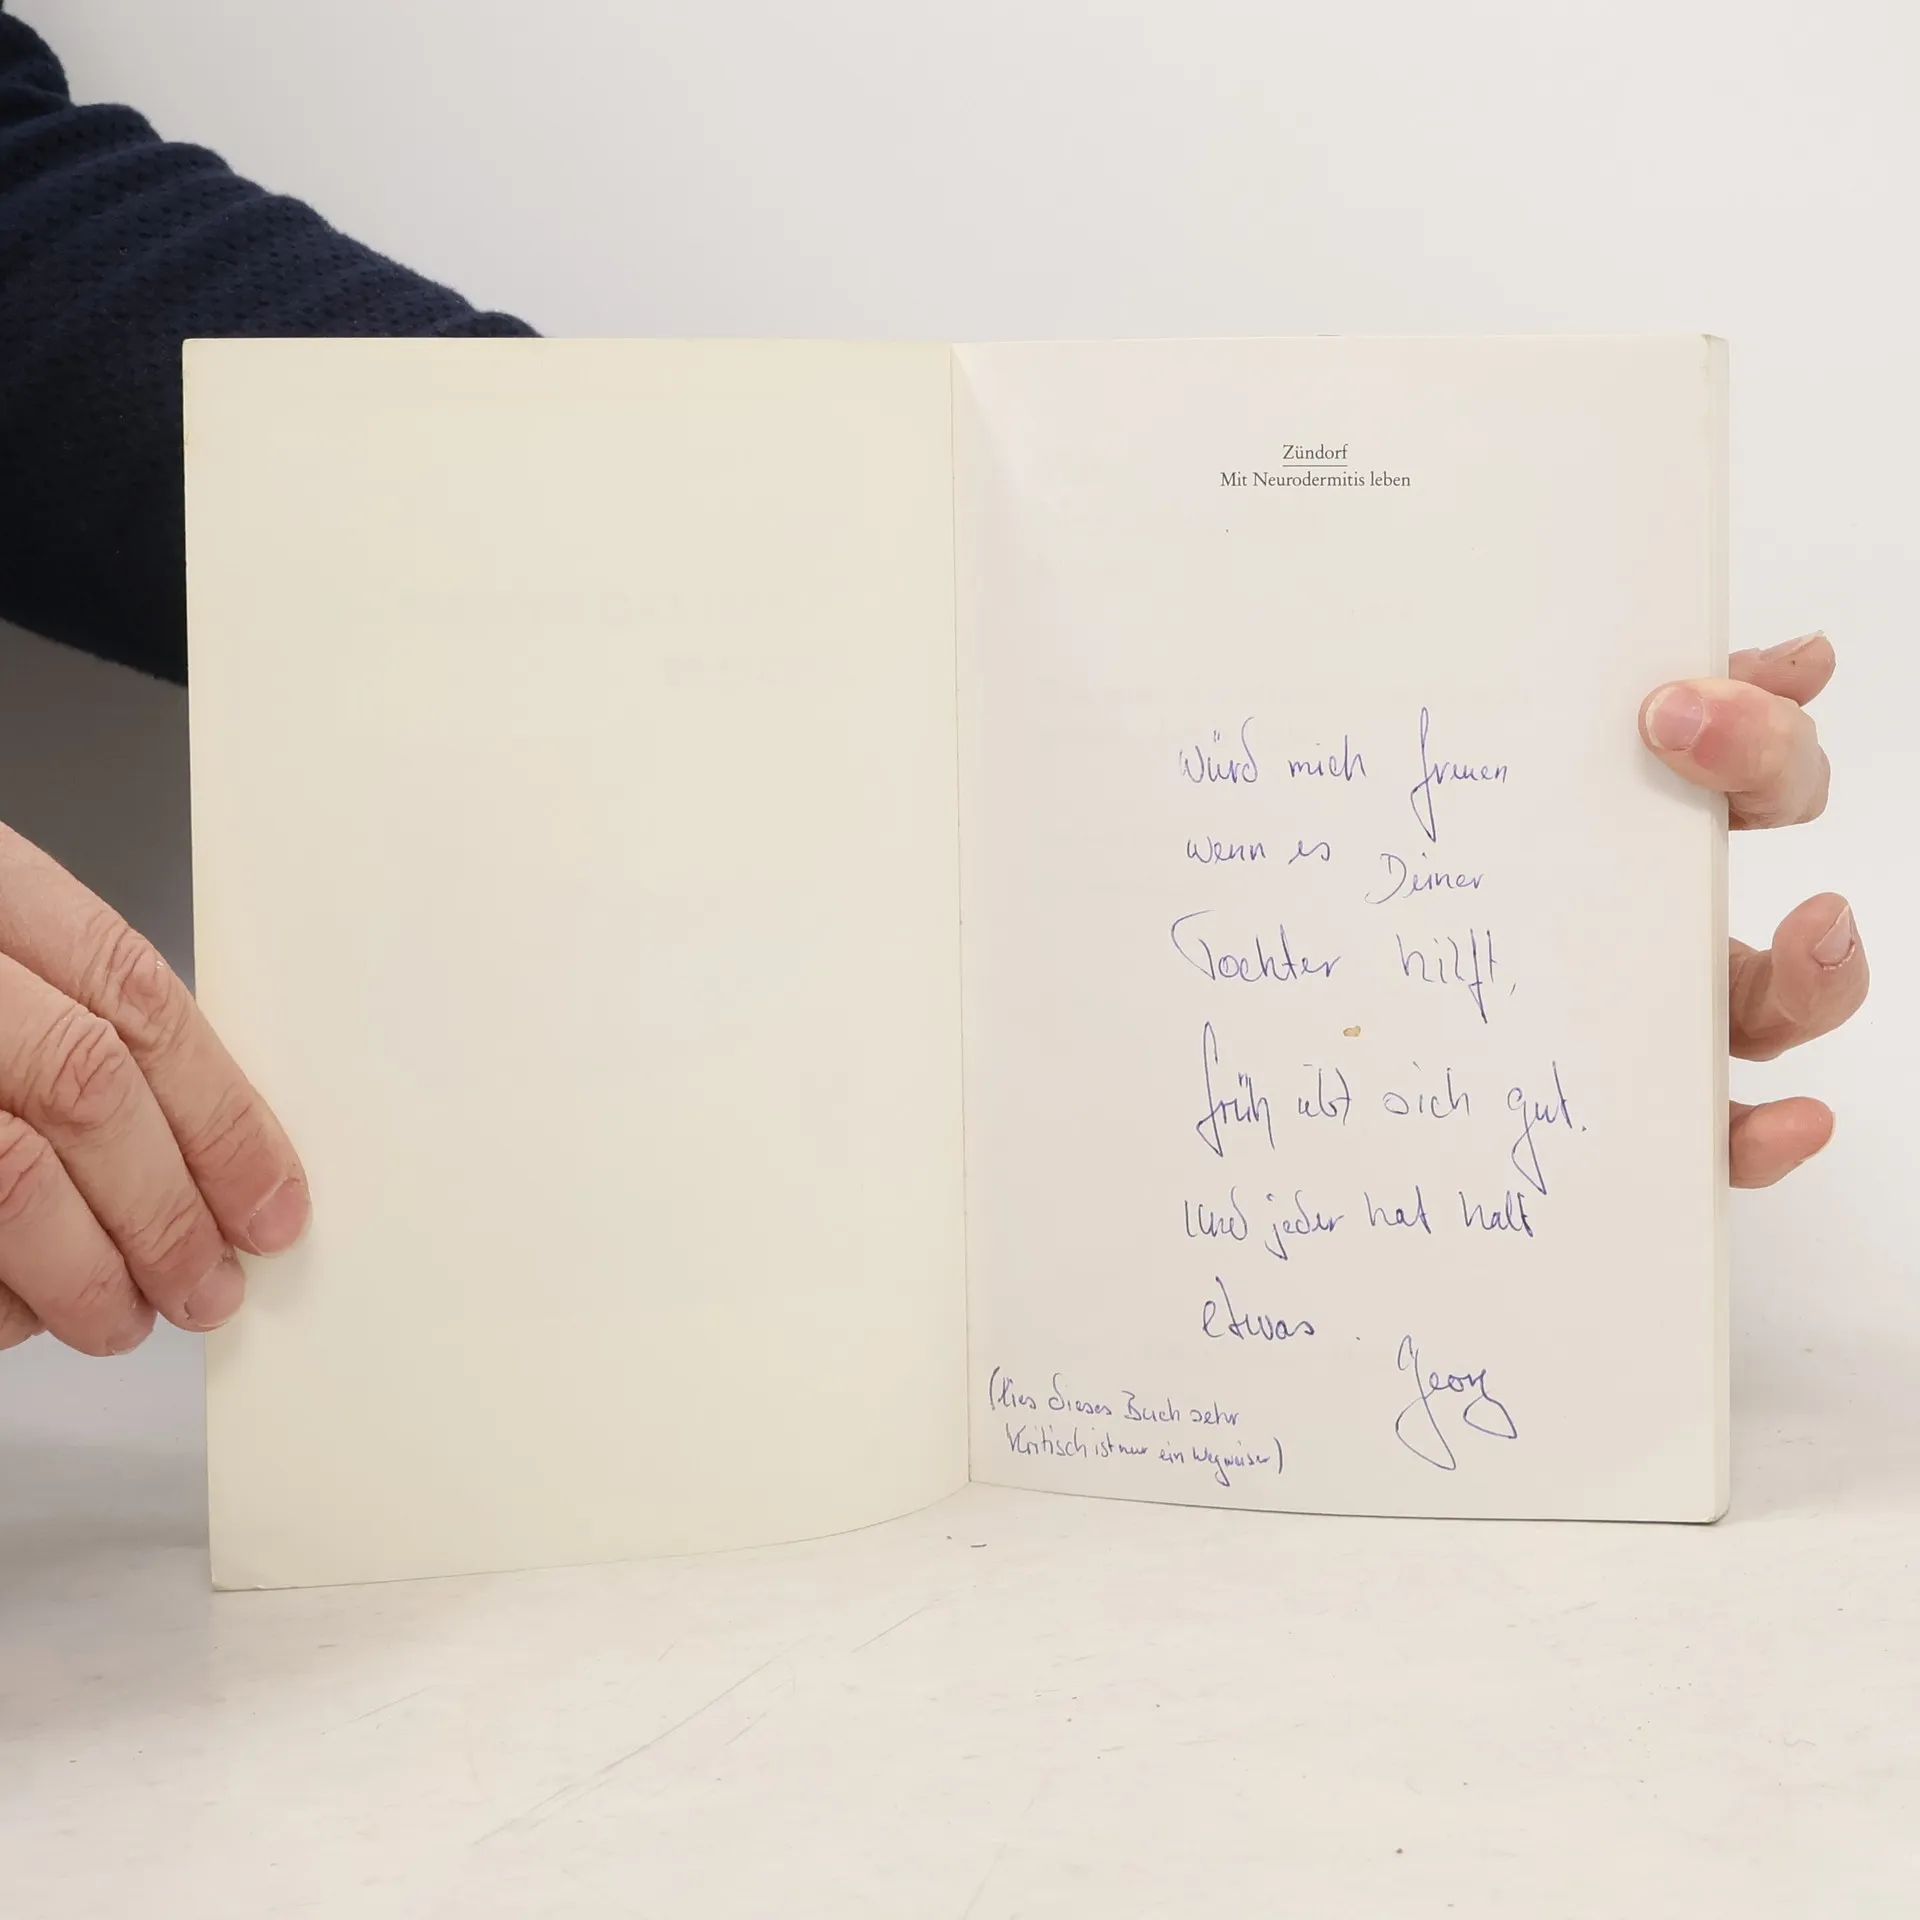 Zündorf
Mit Neurodermitis leben
Würd mich freuen
wenn es Deiner
Tochter hilft,
früh übt sich gut.
Und jeder hat halt
etwas.
Georg
(Lies dieses Buch sehr
Kritisch ist nur ein Wegweiser)